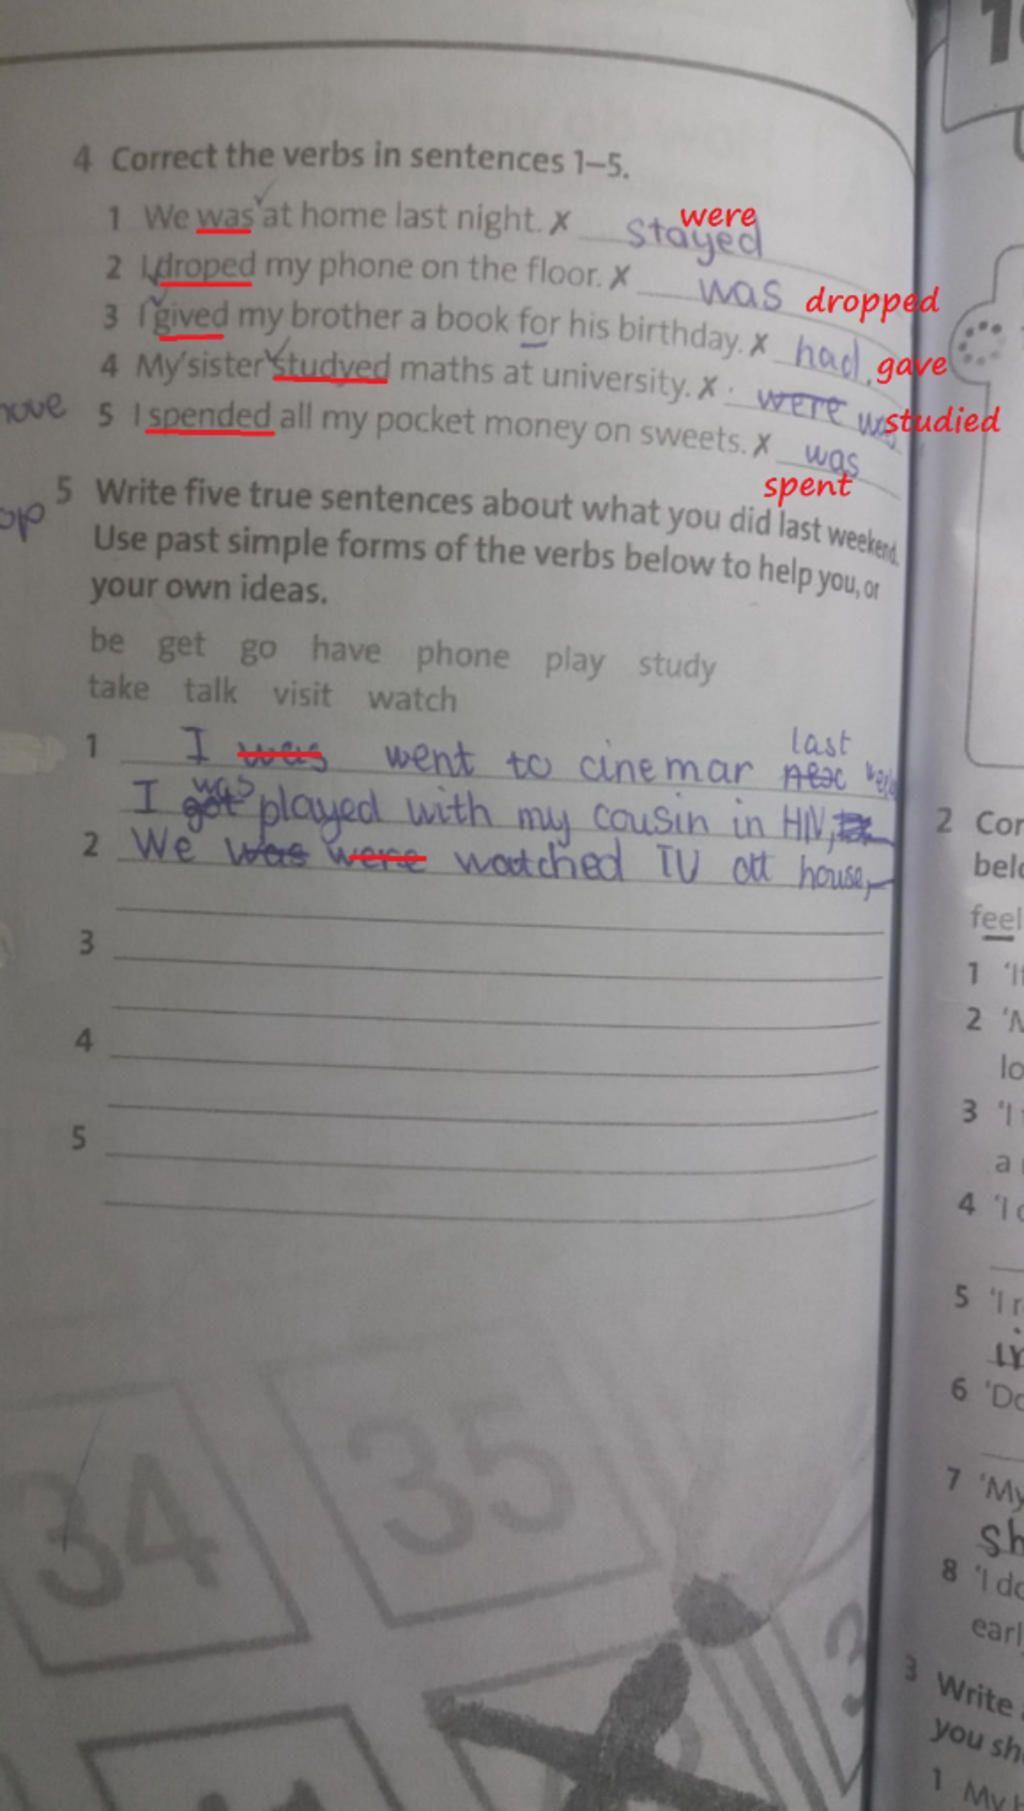 4 Correct the verbs in sentences 1–5.
1 We was at home last night. ✗ stayed were
2 I droped my phone on the floor. ✗ was dropped
3 I gived my brother a book for his birthday. ✗ had gave
4 My sister studyed maths at university. ✗ were was studied
5 I spended all my pocket money on sweets. ✗ was
spent
5 Write five true sentences about what you did last weekend.
Use past simple forms of the verbs below to help you, or
your own ideas.
be get go have phone play study
take talk visit watch
last
1 I was went to cinemar
was
I got played with my cousin in HN,
2 We was were watched TV at house,
3
4
5
34 35
2 Cor
belo
feel
1 'If
2 'M
lo
3 'I
a
4 'I
5 'I r
6 'Do
7 'My
sh
8 'I do
earl
3 Write
you sh
1 My